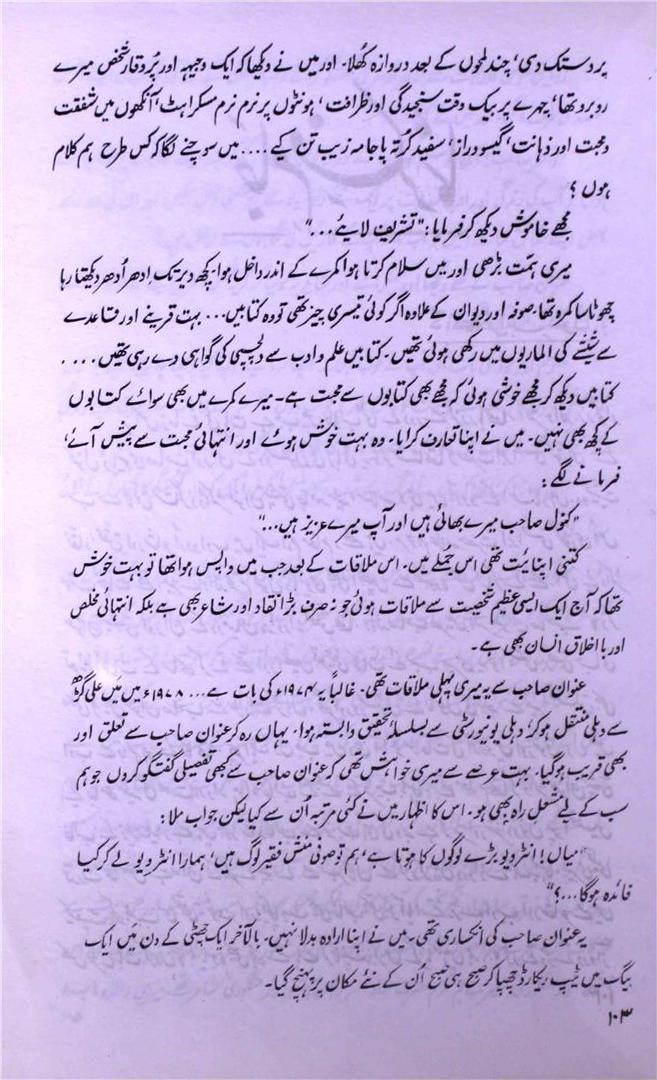 پر دستک دی، چند لمحوں کے بعد دروازہ کھلا۔ اور میں نے دیکھا کہ ایک وجیہہ اور پُر وقار شخص میرے
روبرو تھا، چہرے پر بیک وقت سنجیدگی اور ظرافت، ہونٹوں پر نرم نرم مسکراہٹ، آنکھوں میں شفقت
و محبت اور ذہانت، گیسو دراز، سفید کرتہ پاجامہ زیب تن کیے .... میں سوچنے لگا کہ کس طرح ہم کلام
ہوں؟
مجھے خاموش دیکھ کر فرمایا: "تشریف لایئے..."
میری ہمت بڑھی اور میں سلام کرتا ہوا کمرے کے اندر داخل ہوا۔ کچھ دیر تک اِدھر اُدھر دیکھتا رہا
چھوٹا سا کمرہ تھا، صوفہ اور دیوان کے علاوہ اگر کوئی تیسری چیز تھی تو وہ کتابیں... بہت قرینے اور قاعدے
سے شیشے کی الماریوں میں رکھی ہوئی تھیں۔ کتابیں علم و ادب سے دلچسپی کی گواہی دے رہی تھیں....
کتابیں دیکھ کر مجھے خوشی ہوئی کہ مجھے بھی کتابوں سے محبت ہے۔ میرے کمرے میں بھی سوائے کتابوں
کے کچھ بھی نہیں۔ میں نے اپنا تعارف کرایا۔ وہ بہت خوش ہوئے اور انتہائی محبت سے پیش آئے،
فرمانے لگے:
"کنول صاحب میرے بھائی ہیں اور آپ میرے عزیز ہیں..."
کتنی اپنائیت تھی اس جملے میں۔ اس ملاقات کے بعد جب میں واپس ہوا تھا تو بہت خوش
تھا کہ آج ایک ایسی عظیم شخصیت سے ملاقات ہوئی جو نہ صرف بڑا نقاد اور شاعر بھی ہے بلکہ انتہائی مخلص
اور با اخلاق انسان بھی ہے۔
عنوان صاحب سے یہ میری پہلی ملاقات تھی۔ غالباً یہ ۱۹۷۴ء کی بات ہے... ۱۹۷۸ء میں میں علی گڑھ
سے دہلی منتقل ہو کر، دہلی یونیورسٹی سے بسلسلۂ تحقیق وابستہ ہوا۔ یہاں رہ کر عنوان صاحب سے تعلق اور
بھی قریب ہو گیا۔ بہت عرصے سے میری خواہش تھی کہ عنوان صاحب سے کبھی تفصیلی گفتگو کروں جو ہم
سب کے لیے مشعل راہ بھی ہو۔ اس کا اظہار میں نے کئی مرتبہ اُن سے کیا لیکن جواب ملا:
"میاں! انٹرویو بڑے لوگوں کا ہوتا ہے، ہم تو صوفی منش فقیر لوگ ہیں، ہمارا انٹرویو لے کر کیا
فائدہ ہوگا...؟"
یہ عنوان صاحب کی انکساری تھی۔ میں نے اپنا ارادہ بدلا نہیں۔ بالآخر ایک چھٹی کے دن میں ایک
بیگ میں ٹیپ ریکارڈ چھپا کر صبح ہی صبح اُن کے نئے مکان پر پہنچ گیا۔
۱۰۳